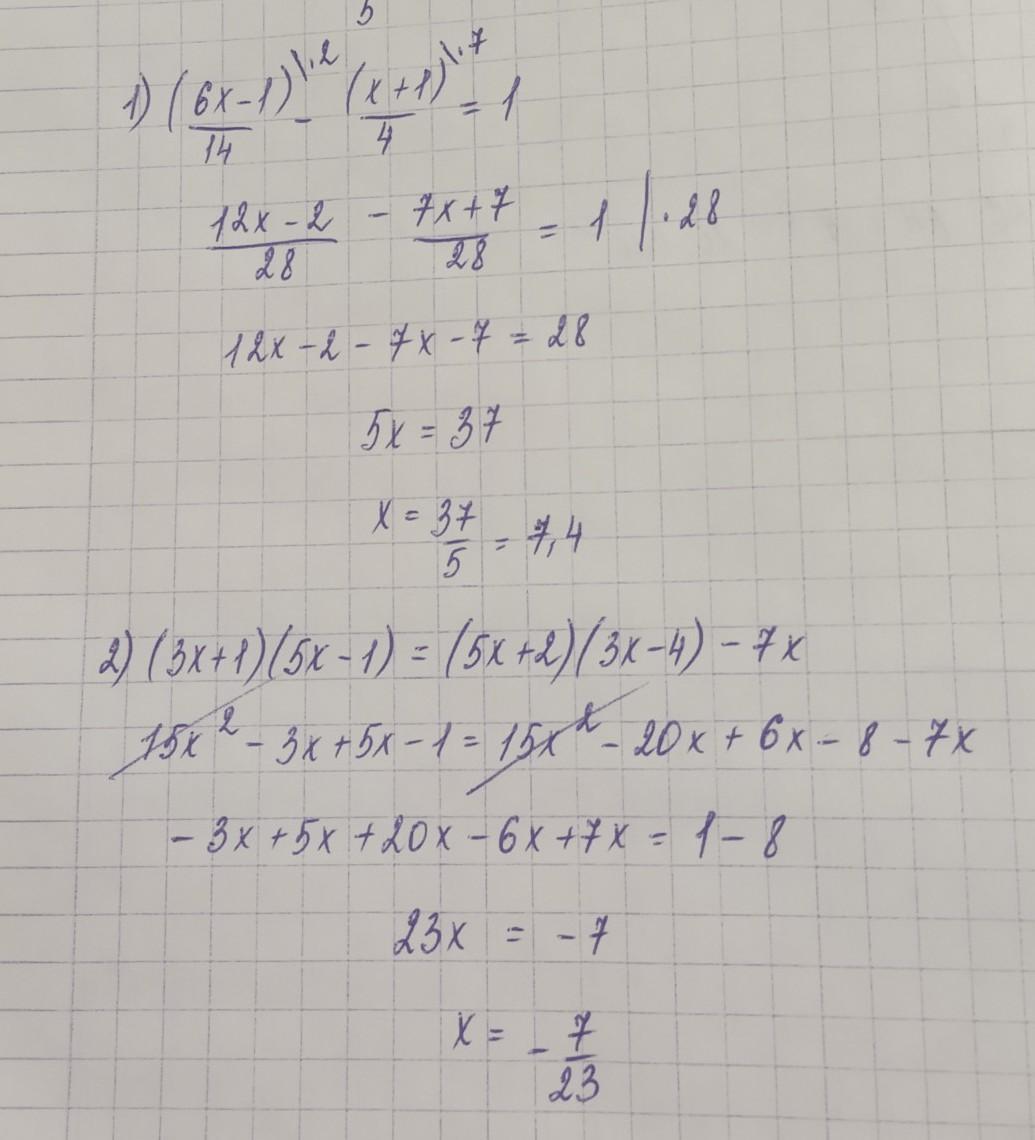 5
1) (6x-1)/14 \·2 - (x+1)/4 \·7 = 1
(12x-2)/28 - (7x+7)/28 = 1 |·28
12x-2-7x-7=28
5x=37
x=37/5=7,4
2) (3x+1)(5x-1)=(5x+2)(3x-4)-7x
15x²-3x+5x-1=15x²-20x+6x-8-7x
-3x+5x+20x-6x+7x=1-8
23x=-7
x=-7/23